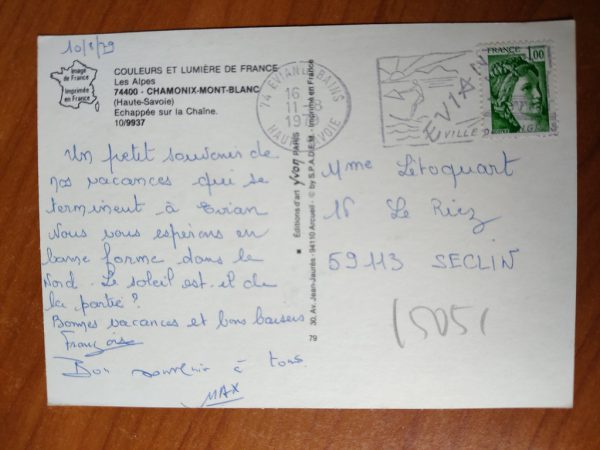 10/8/79
Image
de France
Imprimée
en France
COULEURS ET LUMIÈRE DE FRANCE
Les Alpes
74400 - CHAMONIX-MONT-BLANC
(Haute-Savoie)
Echappée sur la Chaîne.
10/9937
Un petit souvenir de
nos vacances qui se
terminent à Evian
Nous vous espérons en
bonne forme dans le
Nord. Le soleil est-il de
la partie?
Bonnes vacances et bons baisers
Bon souvenir à tous.
MAX
Editions d'art yvon PARIS
30, Av. Jean-Jaurès - 94110 Arcueil - © by S.P.A.D.E.M. - Imprimé en France
79
74 EVIAN LES BAINS
16
11-8
HAUTE SAVOIE
EVIAN
VILLE
FRANCE
1,00
Mme Létoquart
16 Le Riez
59113 SECLIN